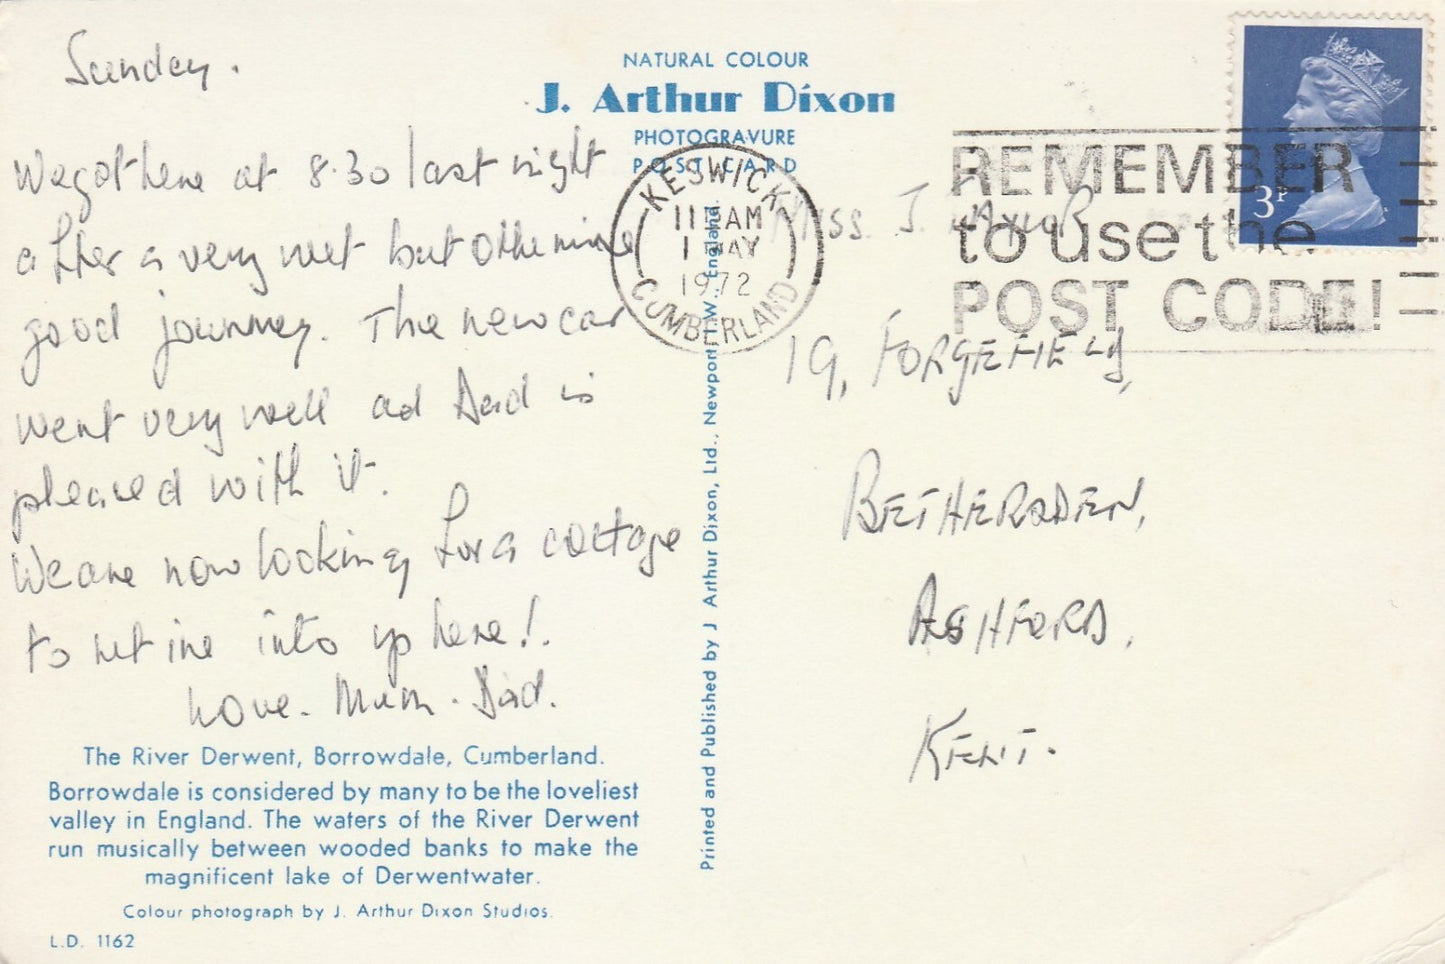 Sunday.
We got here at 8.30 last night
after a very wet but otherwise
good journey. The new car
went very well ad Dad is
pleased with it.
We are now looking for a cottage
to retire into up here!.
Love. Mum. Dad.
The River Derwent, Borrowdale, Cumberland.
Borrowdale is considered by many to be the loveliest
valley in England. The waters of the River Derwent
run musically between wooded banks to make the
magnificent lake of Derwentwater.
Colour photograph by J. Arthur Dixon Studios.
L.D. 1162
NATURAL COLOUR
J. Arthur Dixon
PHOTOGRAVURE
POST CARD
Printed and Published by J Arthur Dixon, Ltd., Newport I.W., England.
KESWICK
11 AM
1 MAY
1972
CUMBERLAND
REMEMBER
to use the
POST CODE!
3P
MISS J.
19, FORGEFIELD,
BETHERSDEN,
ASHFORD,
KENT.